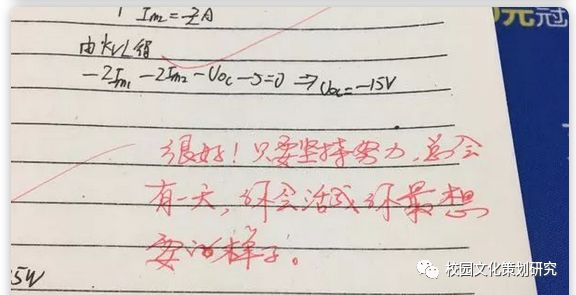 I_{m2}=2A
由KVL得
-2I_{m1}-2I_{m2}-U_{oc}-5=0 ⇒ U_{oc}=-15V
很好！只要坚持努力，总会
有一天，你会活成你最想
要的样子。
5W
元冠
校园文化策划研究